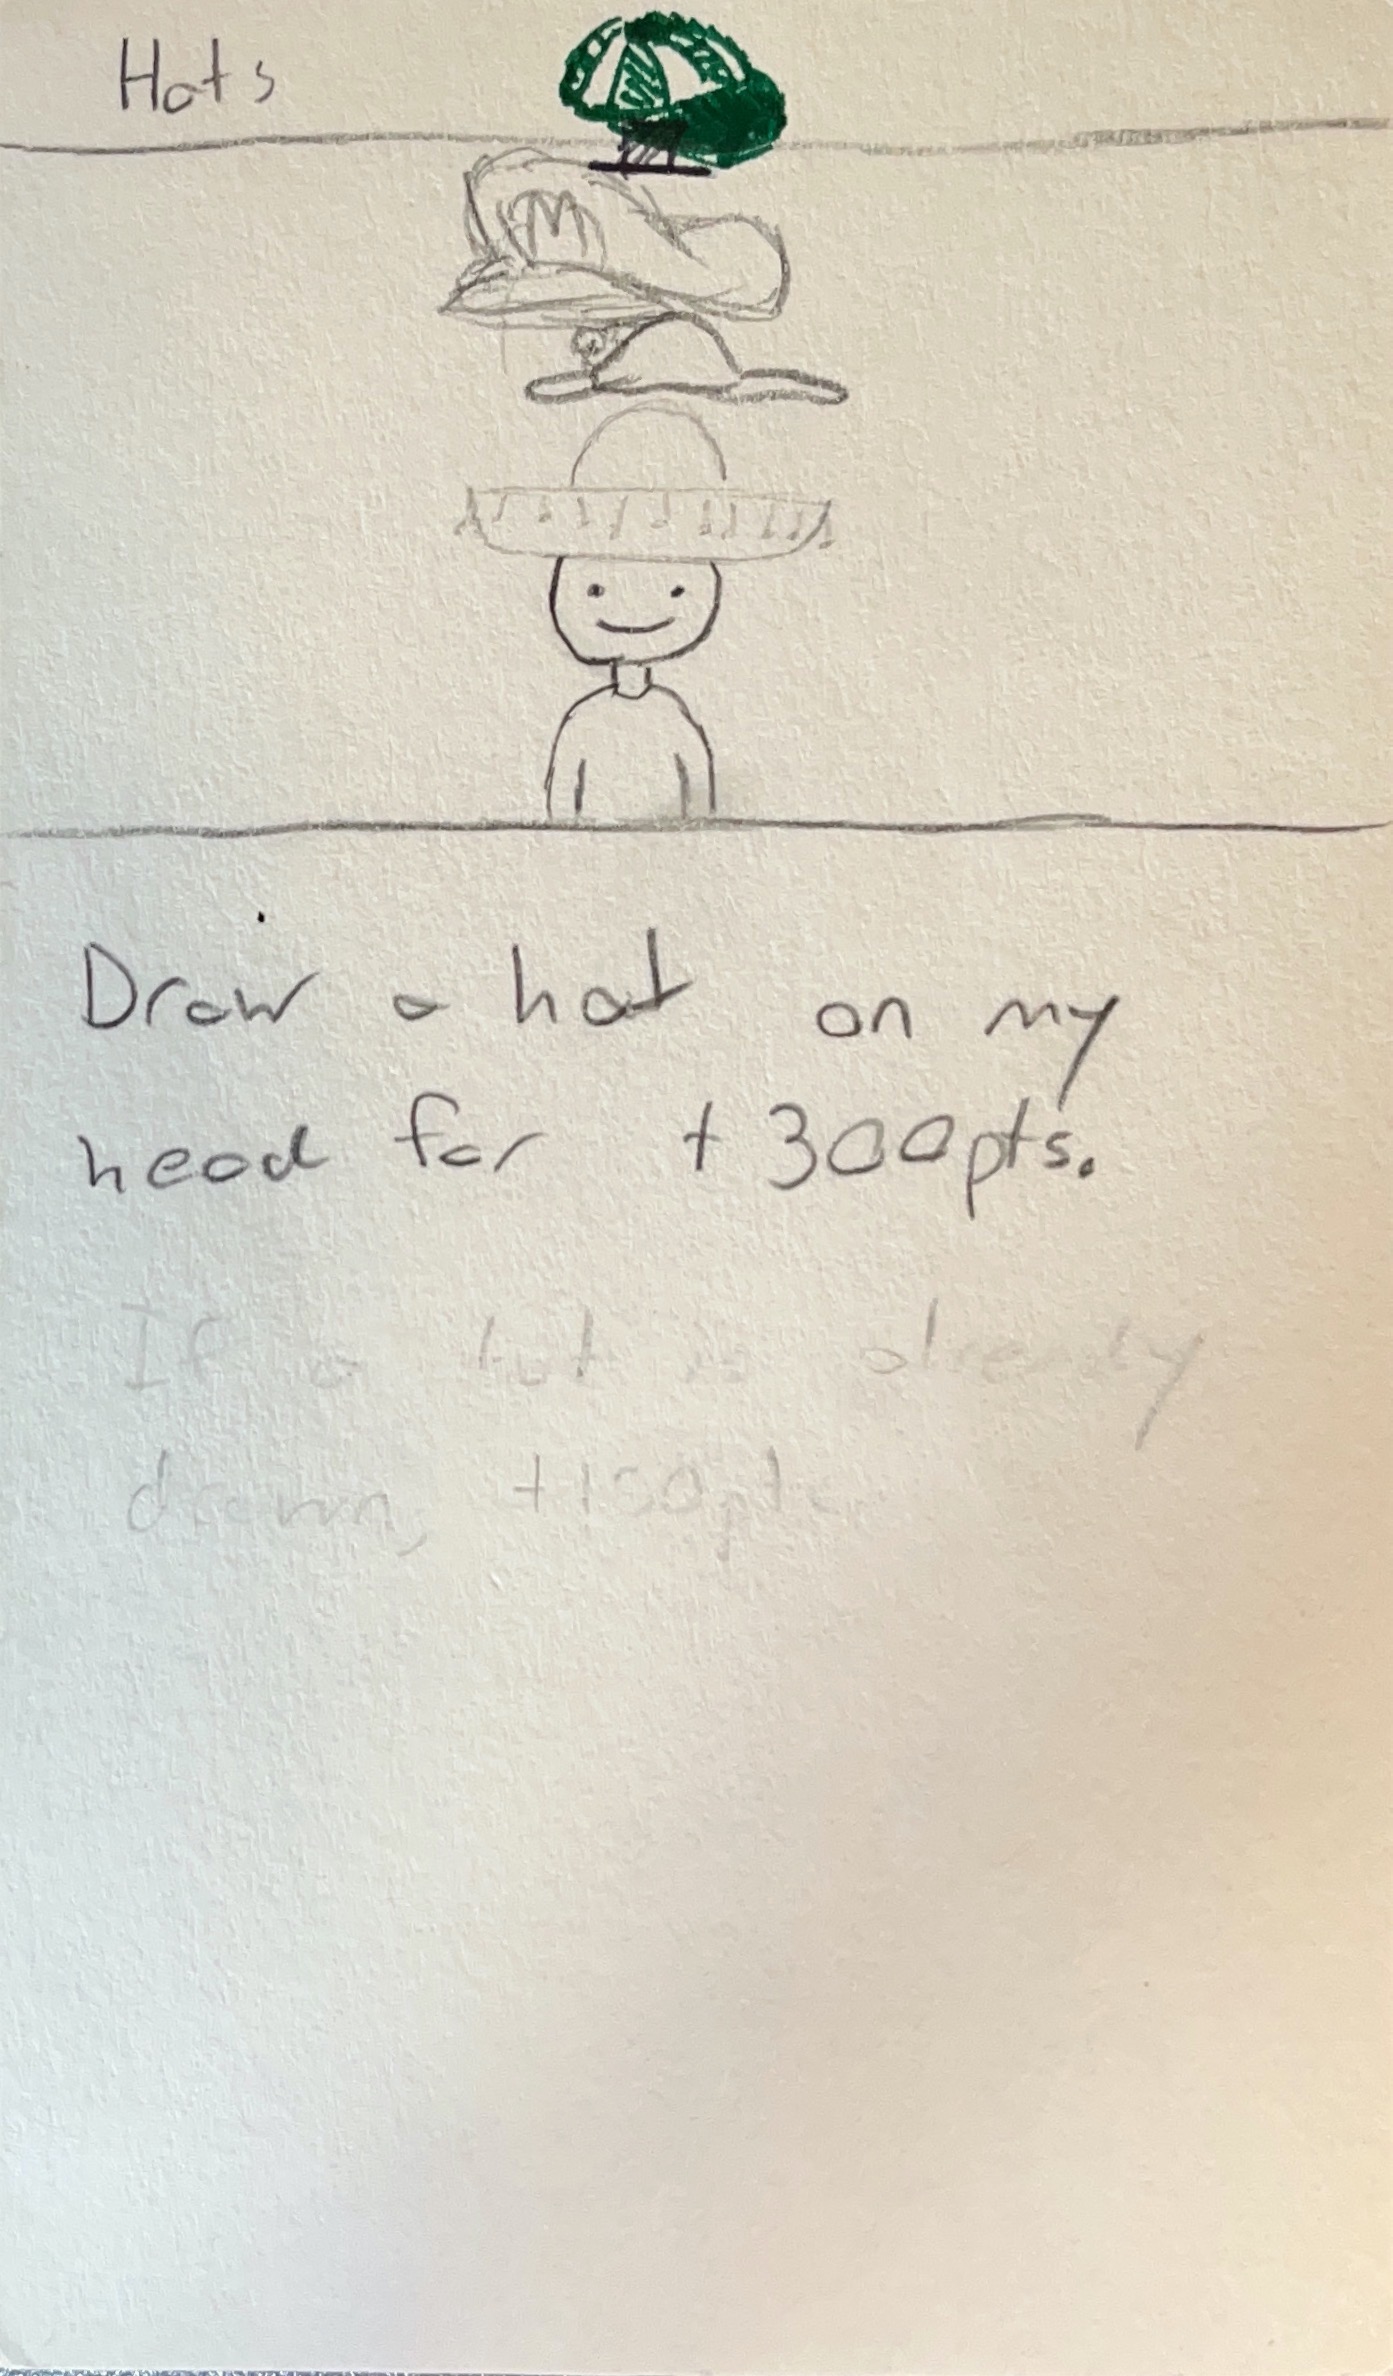 Hats
M
Draw a hat on my
head for +300pts.
If a hat is already
drawn, +150pts